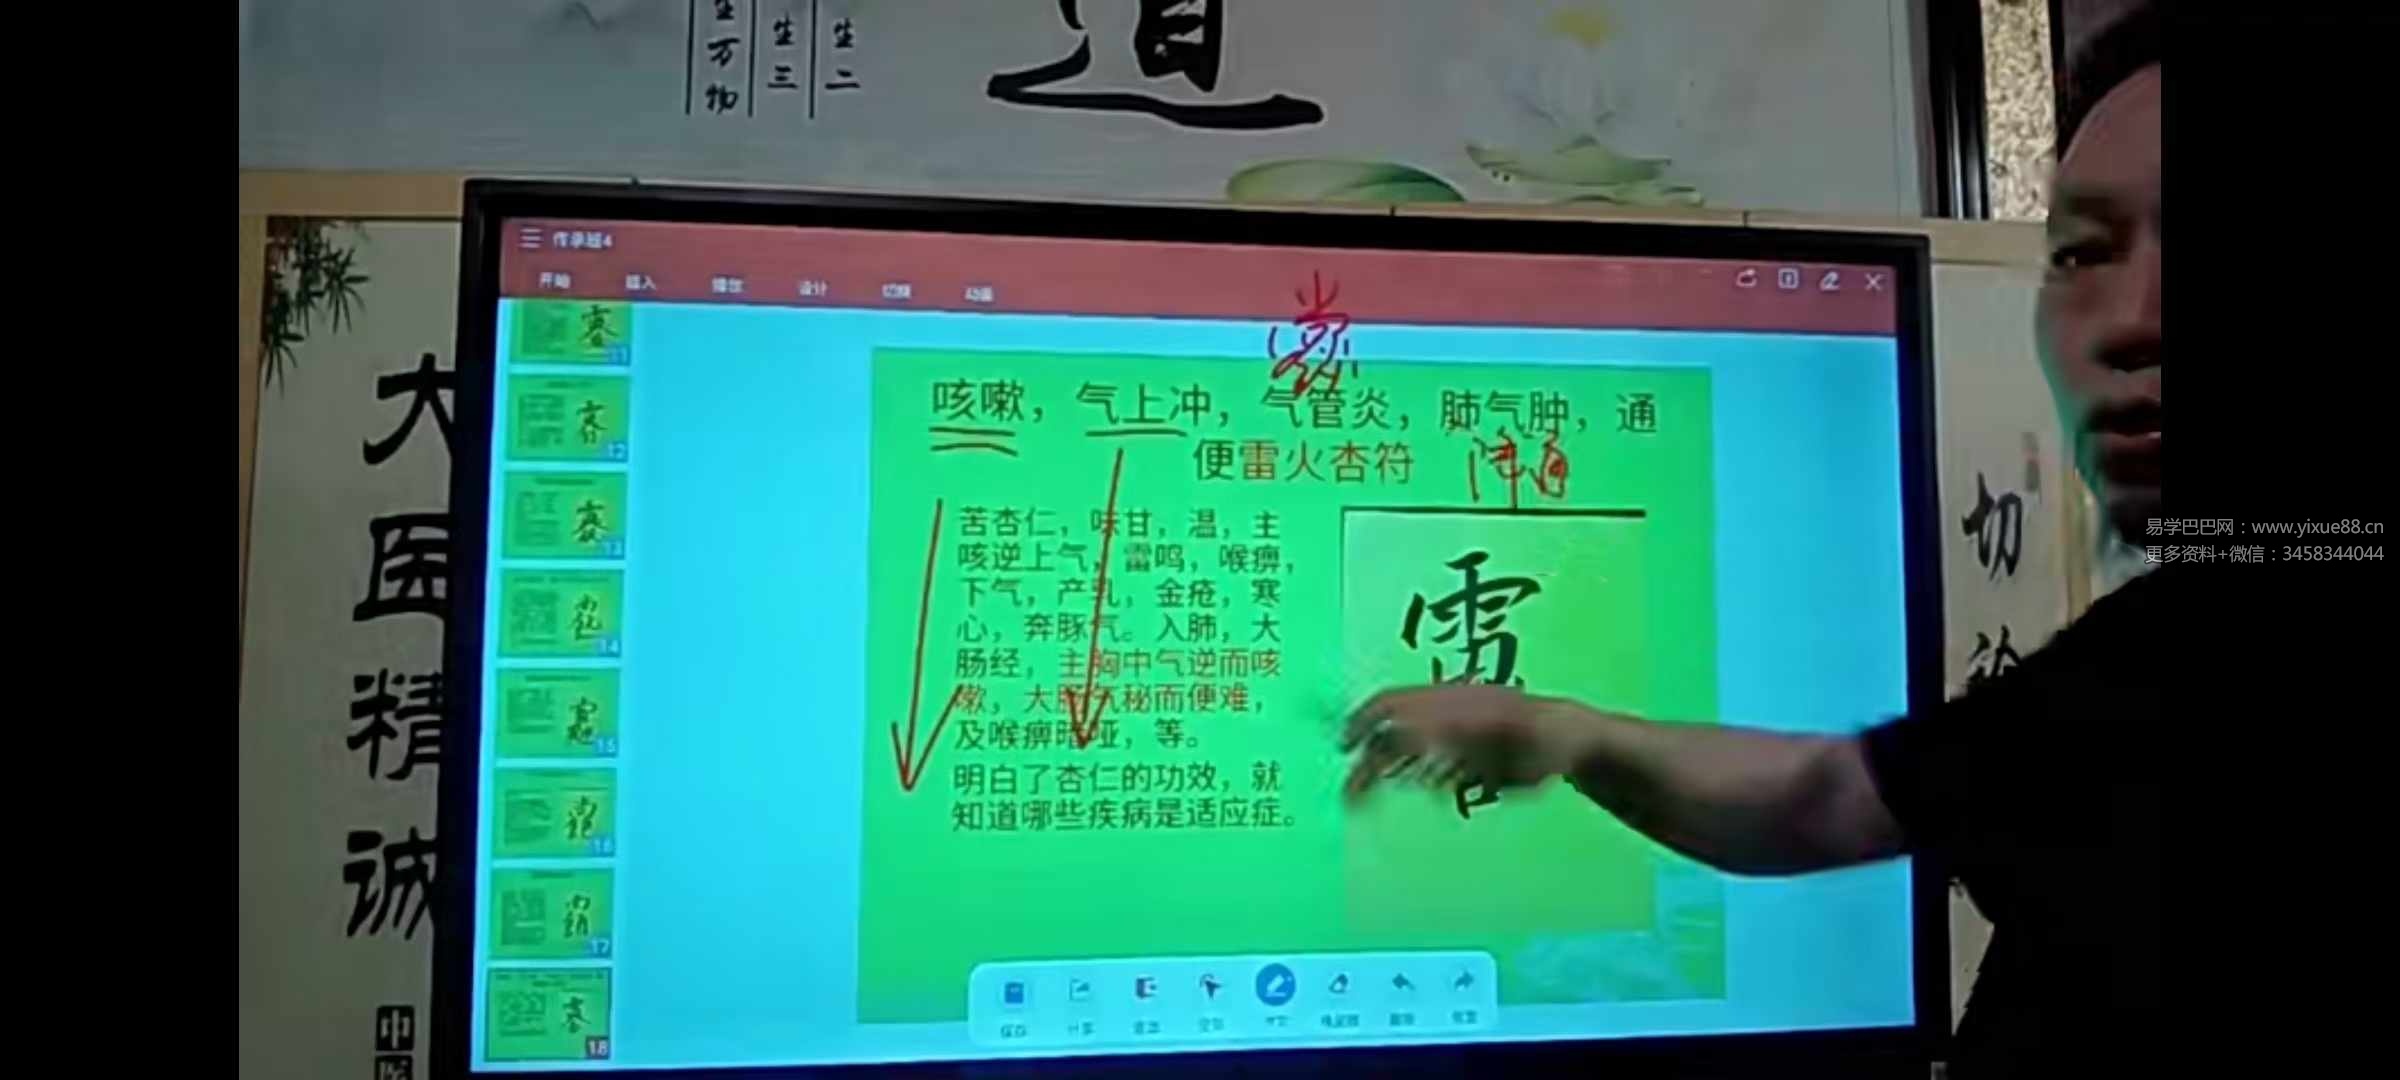 生万物
生三
生二
道
大医精诚
中医
切
传承班4
开始
插入
播放
设计
切换
动画
咳嗽，气上冲，气管炎，肺气肿，通
便雷火杏符
苦杏仁，味甘，温，主
咳逆上气，雷鸣，喉痹，
下气，产乳，金疮，寒
心，奔豚气。入肺，大
肠经，主胸中气逆而咳
嗽，大肠气秘而便难，
及喉痹喑哑，等。
明白了杏仁的功效，就
知道哪些疾病是适应症。
11
12
13
14
15
16
17
18
易学巴巴网：www.yixue88.cn
更多资料+微信：3458344044